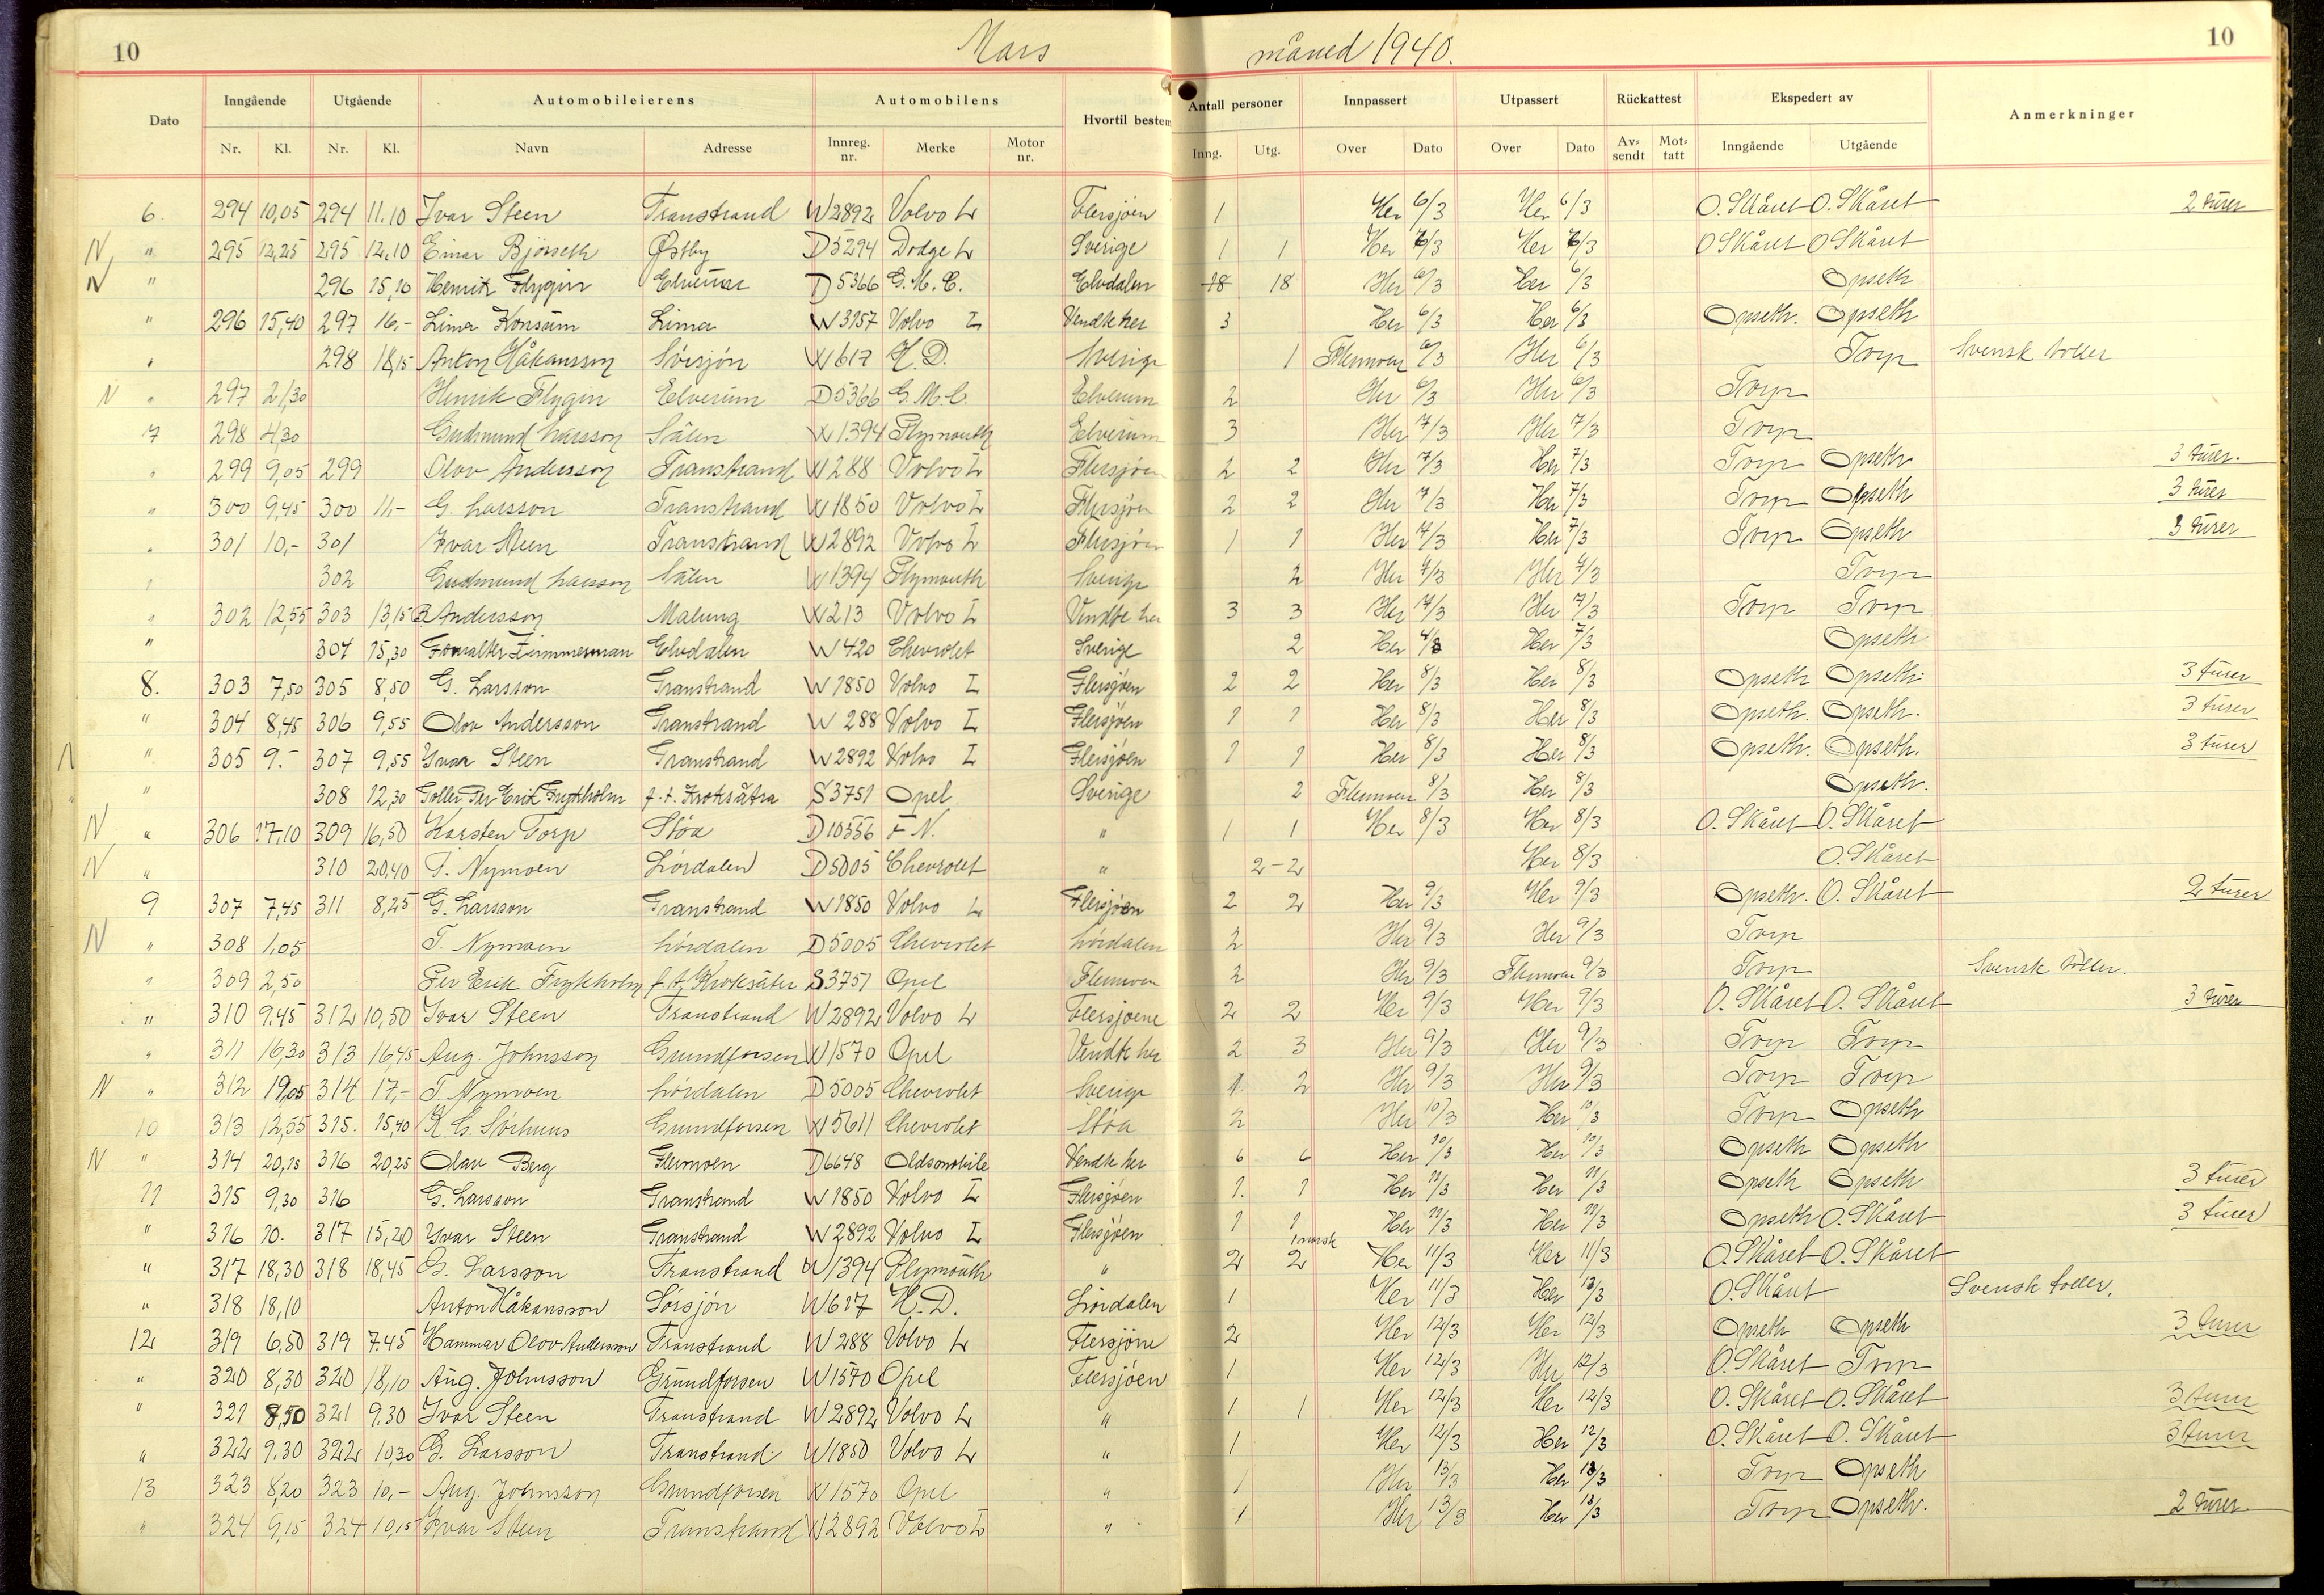 10 Mars måned 1940. 10
Dato Inngående Utgående Automobileierens Automobilens Hvortil bestem Antall personer Innpassert Utpassert Rückattest Ekspedert av Anmerkninger
Nr. Kl. Nr. Kl. Navn Adresse Innreg. nr. Merke Motor nr. Inng. Utg. Over Dato Over Dato Av-sendt Mot-tatt Inngående Utgående
6. 294 10,05 294 11.10 Ivar Steen Transtrand W2892 Volvo L Flersjøen 1 Her 6/3 Her 6/3 O. Skåret O. Skåret 2 turer
N " 295 12,25 295 12.10 Einar Bjørseth Østby D5294 Dodge L Sverige 1 1 Her 6/3 Her 6/3 O Skåret O Skåret
N " 296 15,10 Henrik Flygin Elverum D5366 G.M.C. Elvdalen 18 18 Her 6/3 Her 6/3 Opseth
" 296 15,40 297 16,- Lima Konsum Lima W3157 Volvo L Vendte her 3 Her 6/3 Her 6/3 Opseth. Opseth
" 298 18,15 Anton Håkansson Sörsjön W617 H.D. Sverige 1 Flermoen 6/3 Her 6/3 Torp Svensk toller
N " 297 21,30 Henrik Flygin Elverum D5366 G.M.C. Elverum 2 Her 6/3 Her 6/3 Torp
7 298 4,30 Gudmund Larsson Sälen W1394 Plymouth Elverum 3 Her 7/3 Her 7/3 Torp
" 299 9,05 299 Olov Andersson Transtrand W288 Volvo L Flersjøen 2 2 Her 7/3 Her 7/3 Torp Opseth 3 turer.
" 300 9,45 300 11,- G. Larsson Transtrand W1850 Volvo L Flersjøen 2 2 Her 7/3 Her 7/3 Torp Opseth 3 turer
" 301 10,- 301 Ivar Steen Transtrand W2892 Volvo L Flersjøen 1 1 Her 7/3 Her 7/3 Torp Opseth 3 turer
" 302 Gudmund Larsson Sälen W1394 Plymouth Sverige 2 Her 7/3 Her 7/3 Torp
" 302 12,55 303 13,15 B Andersson Malung W213 Volvo L Vendte her 3 3 Her 7/3 Her 7/3 Torp Torp
" 304 15,30 Forvalter Zimmerman Elvdalen W420 Chevrolet Sverige 2 Her 4/3 Her 7/3 Opseth
8. 303 7,50 305 8,50 G. Larsson Transtrand W1850 Volvo L Flersjøen 2 2 Her 8/3 Her 8/3 Opseth Opseth 3 turer
" 304 8,45 306 9,55 Olov Andersson Transtrand W 288 Volvo L Flersjøen 1 1 Her 8/3 Her 8/3 Opseth. Opseth. 3 turer
N " 305 9.- 307 9,55 Yvar Steen Transtrand W2892 Volvo L Flersjøen 1 1 Her 8/3 Her 8/3 Opseth. Opseth. 3 turer
" 308 12,30 Toller Per Erik Frykholm f.t. Kroksätra S3751 Opel Sverige 2 Flermoen 8/3 Her 8/3 Opseth.
N " 306 17,10 309 16,50 Karsten Torp Støa D10556 F.N. " 1 1 Her 8/3 Her 8/3 O. Skåret O. Skåret
N " 310 20,40 T. Nymoen Lördalen D5005 Chevrolet " 2-2 Her 8/3 O. Skåret
9 307 7,45 311 8,25 G. Larsson Transtrand W1850 Volvo L Flersjøen 2 2 Her 9/3 Her 9/3 Opseth. O. Skåret 2 turer
N " 308 1,05 T. Nymoen Lördalen D5005 Chevrolet Lördalen 2 Her 9/3 Her 9/3 Torp
" 309 2,50 Per Erik Frykholm f.t. Kroksäter S3751 Opel Flermoen 2 Her 9/3 Flermoen 9/3 Torp Svensk toller.
" 310 9.45 312 10,50 Ivar Steen Transtrand W2892 Volvo L Flersjøene 2 2 Her 9/3 Her 9/3 O. Skåret O. Skåret 3 turer
" 311 16,30 313 16,45 Aug. Johnsson Grundforsen W1570 Opel Vendte her 2 3 Her 9/3 Her 9/3 Torp Torp
N " 312 19,05 314 17,- T. Nymoen Lördalen D5005 Chevrolet Sverige 1 2 Her 9/3 Her 9/3 Torp Torp
10 313 12,55 315. 15,40 K.G. Sörhuus Grundforsen W5611 Chevrolet Støa 2 Her 10/3 Her 10/3 Torp Opseth
N " 314 20,15 316 20,25 Olav Berg Flermoen D6648 Oldsomobile Vendte her 6 6 Her 10/3 Her 10/3 Opseth Opseth
11 315 9,30 316 G. Larsson Transtrand W1850 Volvo L Flersjøen 1. 1 Her 11/3 Her 11/3 Opseth Opseth 3 turer
" 316 10. 317 15,20 Yvar Steen Transtrand W2892 Volvo L Flersjøen 1 1 Her 11/3 Her 11/3 Opseth O. Skåret 3 turer
" 317 18,30 318 18,45 G. Larsson Transtrand W1394 Plymouth " 2 1 norsk 2 Her 11/3 Her 11/3 O. Skåret O. Skåret
" 318 18,10 Anton Håkansson Sörsjön W617 H.D. Lördalen 1 Her 11/3 Her 13/3 O. Skåret Svensk toller.
12 319 6,50 319 7.45 Hammar Olov Andersson Transtrand W288 Volvo L Flersjøne 2 Her 12/3 Her 12/3 Opseth Opseth 3 turer
" 320 8,30 320 18,10 Aug. Johnsson Grundforsen W1570 Opel Flersjøen 1 Her 12/3 Her 12/3 O. Skåret Torp
" 321 8,50 321 9.30 Ivar Steen Transtrand W2892 Volvo L " 1 1 Her 12/3 Her 12/3 O. Skåret O. Skåret 3 turer
" 322 9.30 322 10,30 G. Larsson Transtrand W1850 Volvo L " 1 Her 12/3 Her 12/3 O. Skåret O. Skåret 3 turer
13 323 8,20 323 10,- Aug. Johnsson Grundforsen W1570 Opel " 1 Her 13/3 Her 13/3 Torp Opseth
" 324 9,15 324 10,15 Ivar Steen Transtrand W2892 Volvo L " 1 Her 13/3 Her 13/3 Torp Opseth. 2 turer